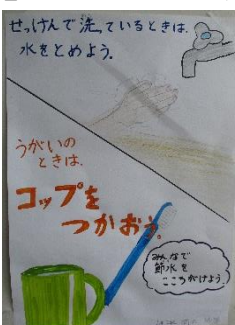 せっけんで洗っているときは、
水をとめよう。
うがいの
ときは、
コップを
つかおう。
みんなで
節水を
こころがけよう。